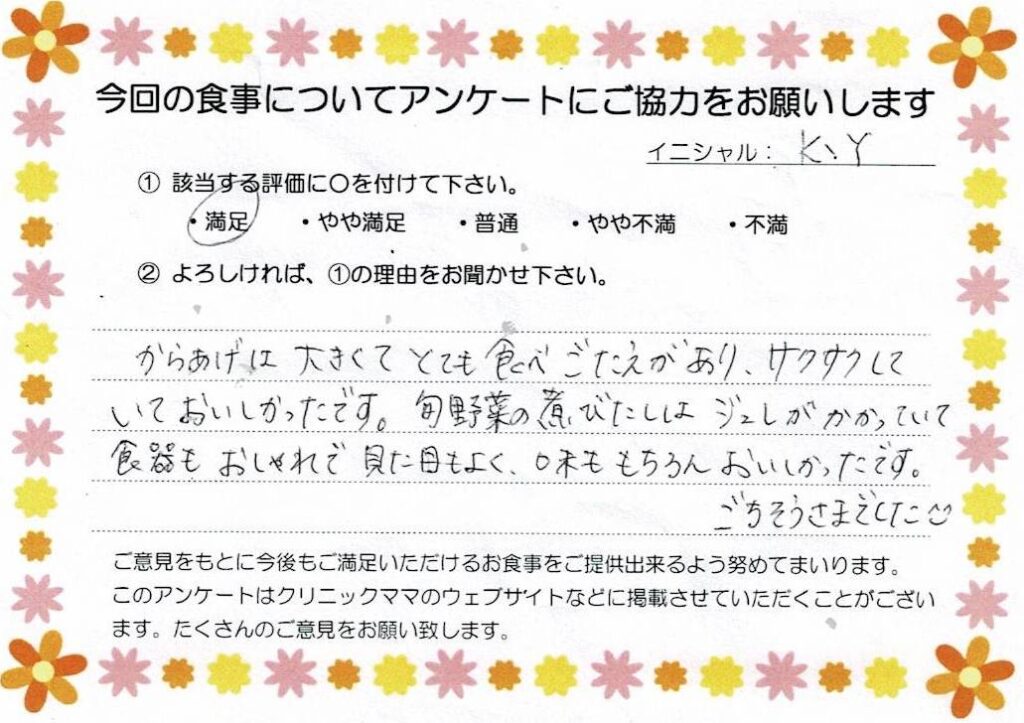 今回の食事についてアンケートにご協力をお願いします
イニシャル： K、Y
① 該当する評価に〇を付けて下さい。
・満足 ・やや満足 ・普通 ・やや不満 ・不満
② よろしければ、①の理由をお聞かせ下さい。
からあげは 大きくて とても 食べごたえがあり、サクサクして
いて おいしかったです。旬野菜の煮びたしは ジュレがかかっていて
食器も おしゃれで 見た目もよく、味も もちろん おいしかったです。
ごちそうさまでした
ご意見をもとに今後もご満足いただけるお食事をご提供出来るよう努めてまいります。
このアンケートはクリニックママのウェブサイトなどに掲載させていただくことがござい
ます。たくさんのご意見をお願い致します。